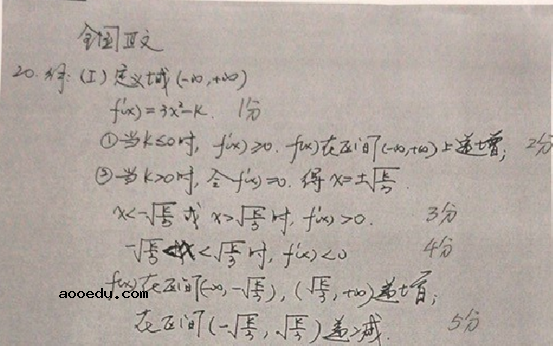 全国Ⅲ文
20. 解: (I) 定义域(-∞,+∞)
f'(x)=3x²-k. 1分
①当k≤0时, f'(x)≥0. f(x)在区间(-∞,+∞)上递增; 2分
②当k>0时, 令f'(x)=0. 得x=±√(k/3)
x<-√(k/3) 或 x>√(k/3) 时, f'(x)>0. 3分
-√(k/3)<x<√(k/3) 时, f'(x)<0 4分
f(x)在区间(-∞,-√(k/3)), (√(k/3),+∞)递增;
aooedu.com
在区间(-√(k/3),√(k/3))递减. 5分